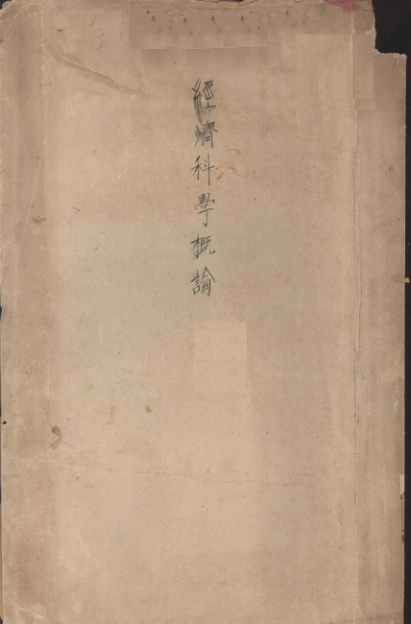 經濟科學概論